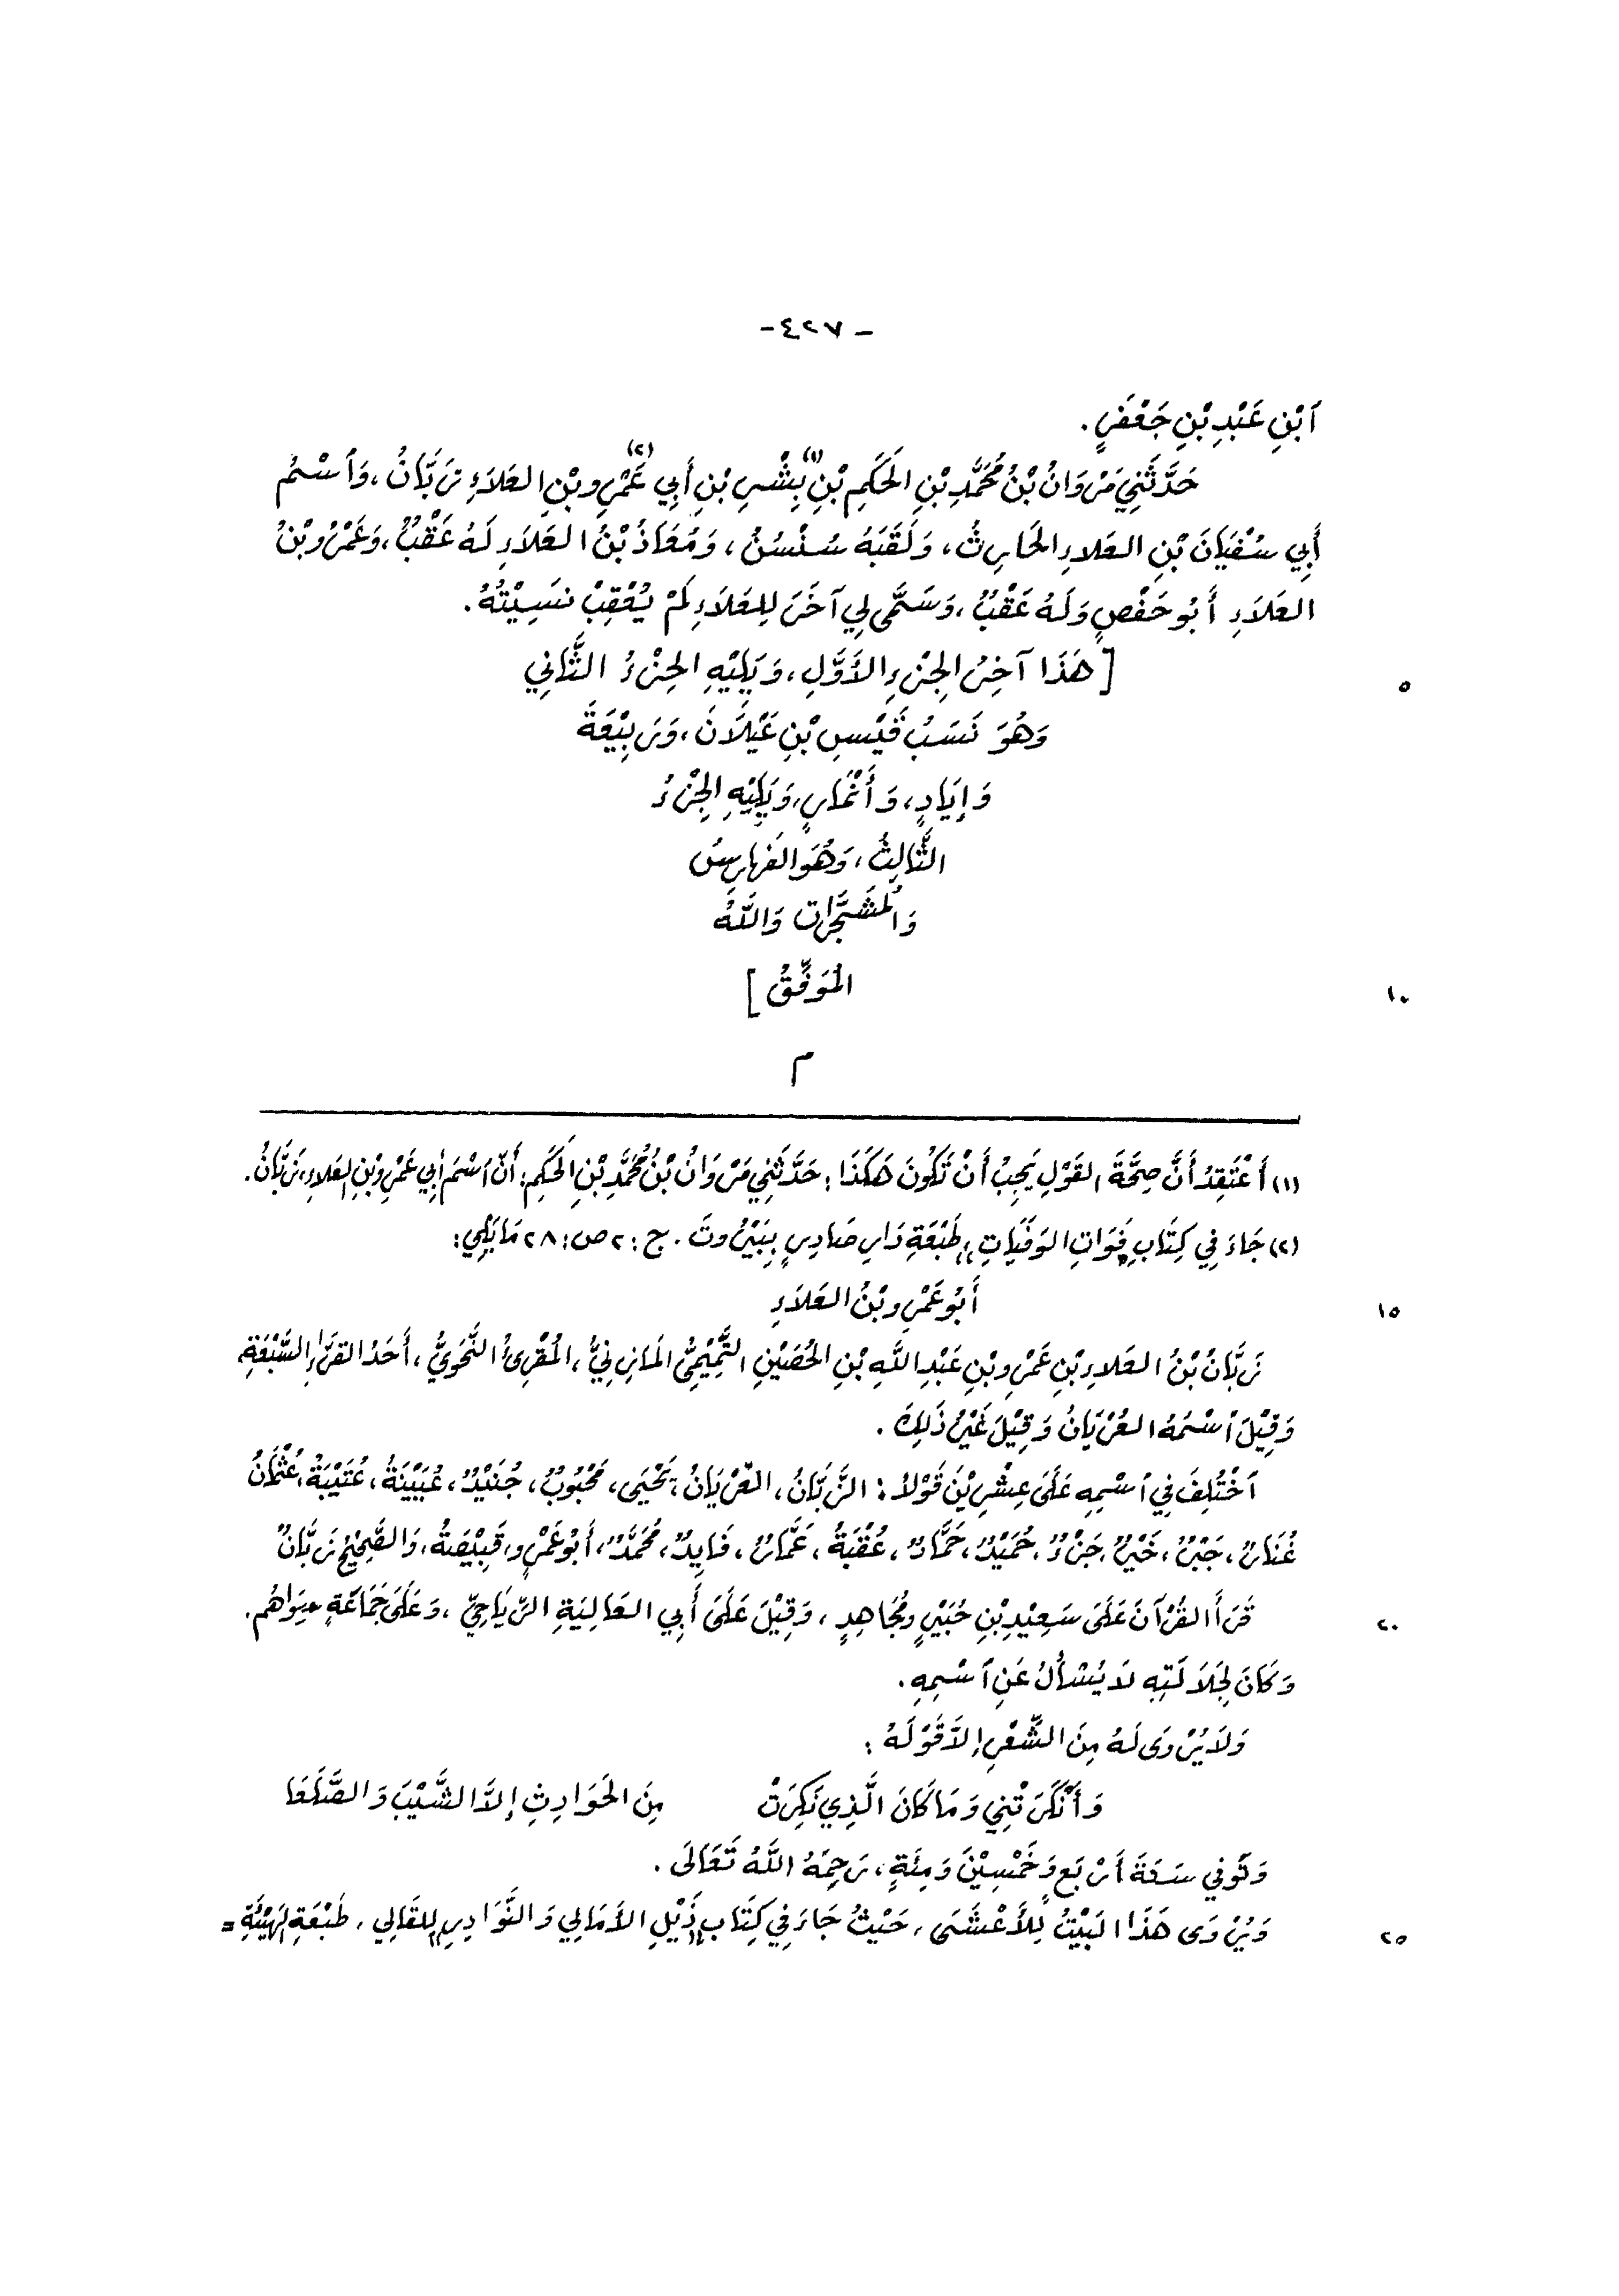 - ٤٢٧ -
ٱبْنِ عَبْدِ بْنِ جَعْفَرٍ.
حَدَّثَنِي مَرْوَانُ بْنُ مُحَمَّدِ بْنِ الحَكَمِ بْنِ (١) بِشْرِ بْنِ أَبِي عَمْرِو (٢) بْنِ العَلاَءِ زَبَّانُ، وَٱسْمُ
أَبِي سُفْيَانَ بْنِ العَلاءِ الحَارِثُ، وَلَقَبُهُ سُنْسُنُ، وَمُعَاذُ بْنُ العَلاَءِ لَهُ عَقْبٌ، وَعَمْرُو بْنُ
العَلاَءِ أَبُو حَفْصٍ وَلَهُ عَقْبٌ، وَسَمَّى لِي آخَرَ لِلعَلاَءِ لَمْ يُعْقِبْ نَسِيْتُهُ.
[ هَذَا آخِرُ الجُزْءِ الأَوَّلِ، وَيَلِيْهِ الجُزْءُ الثَّانِي
٥
وَهُوَ نَسَبُ قَيْسِ بْنِ عَيْلاَنَ، وَرَبِيْعَةَ
وَإِيَادٍ، وَأَنْمَارٍ، وَيَلِيْهِ الجُزْءُ
الثَّالِثُ، وَهُوَ الفَهَارِسُ
وَالمُشَجَّرَاتِ وَاللَّهُ
المُوَفِّقُ ]
١٠
م
(١) أَعْتَقِدُ أَنَّ صِحَّةَ القَوْلِ يَجِبُ أَنْ تَكُونَ هَكَذَا: حَدَّثَنِي مَرْوَانُ بْنُ مُحَمَّدِ بْنِ الحَكَمِ: أَنَّ ٱسْمَ أَبِي عَمْرِو بْنِ العَلاءِ، زَبَّانُ.
(٢) جَاءَ فِي كِتَابِ "فَوَاتِ الوَفَيَاتِ" طَبْعَةِ دَارِ صَادِرٍ بِبَيْرُوتَ. ج: ٢ ص: ٢٨ مَا يَلِي:
أَبُو عَمْرِو بْنُ العَلاَءِ
١٥
زَبَّانُ بْنُ العَلاءِ بْنِ عَمْرِو بْنِ عَبْدِ اللَّهِ بْنِ الحُصَيْنِ التَّمِيْمِيُّ المَازِنِيُّ، المُقْرِئُ النَّحَوِيُّ، أَحَدُ القُرَّاءِ السَّبْعَةِ،
وَقِيْلَ ٱسْمُهُ العُرْيَانُ وَقِيْلَ غَيْرُ ذَلِكَ.
ٱخْتُلِفَ فِي ٱسْمِهِ عَلَى عِشْرِيْنَ قَوْلاً: الزَّبَّانُ، العُرْيَانُ، يَحْيَى، مَحْبُوبٌ، جُنَيْدٌ، عُيَيْنَةُ، عُتَيْبَةُ، عُثْمَانُ
غُنَارٌ، جَبْرٌ، خَيْرٌ، جَزْءٌ، حُمَيْدٌ، حَمَّادٌ، عُقْبَةُ، عَمَّارٌ، فَايِدٌ، مُحَمَّدٌ، أَبُو عَمْرٍو، قَبِيْصَةُ، وَالصَّحِيْحُ زَبَّانٌ
قَرَأَ القُرْآنَ عَلَى سَعِيْدِ بْنِ جُبَيْرٍ وَمُجَاهِدٍ، وَقِيْلَ عَلَى أَبِي العَالِيَةِ الرِّيَاحِيِّ، وَعَلَى جَمَاعَةٍ سِوَاهُم.
٢٠
وَكَانَ لِجَلاَلَتِهِ لاَ يُسْأَلُ عَنِ ٱسْمِهِ.
وَلاَ يُرْوَى لَهُ مِنَ الشِّعْرِ إِلاَّ قَوْلَهُ:
وَأَنْكَرَتْنِي وَمَا كَانَ الَّذِي نَكِرَتْ مِنَ الحَوَادِثِ إِلاَّ الشَّيْبَ وَالصَّلَعَا
وَتُوُفِيَ سَنَةَ أَرْبَعٍ وَخَمْسِيْنَ وَمِئَةٍ، رَحِمَهُ اللَّهُ تَعَالَى.
وَيُرْوَى هَذَا البَيْتُ لِلأَعْشَى، حَيْثُ جَاءَ فِي كِتَابِ "ذَيْلِ الأَمَالِي وَالنَّوَادِرِ" لِلقَالِي، طَبْعَةِ الهَيْئَةِ =
٢٥